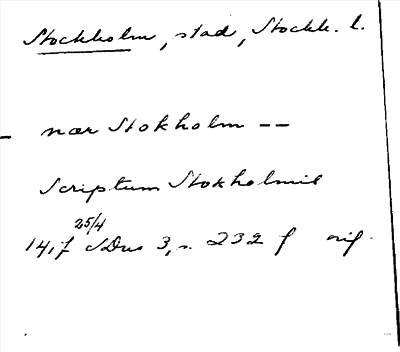 Stockholm, stad, Stockh. l.
nær Stokholm --
Scriptum Stokholmis
25/4
1417 SDns 3, s. 232 f orig.